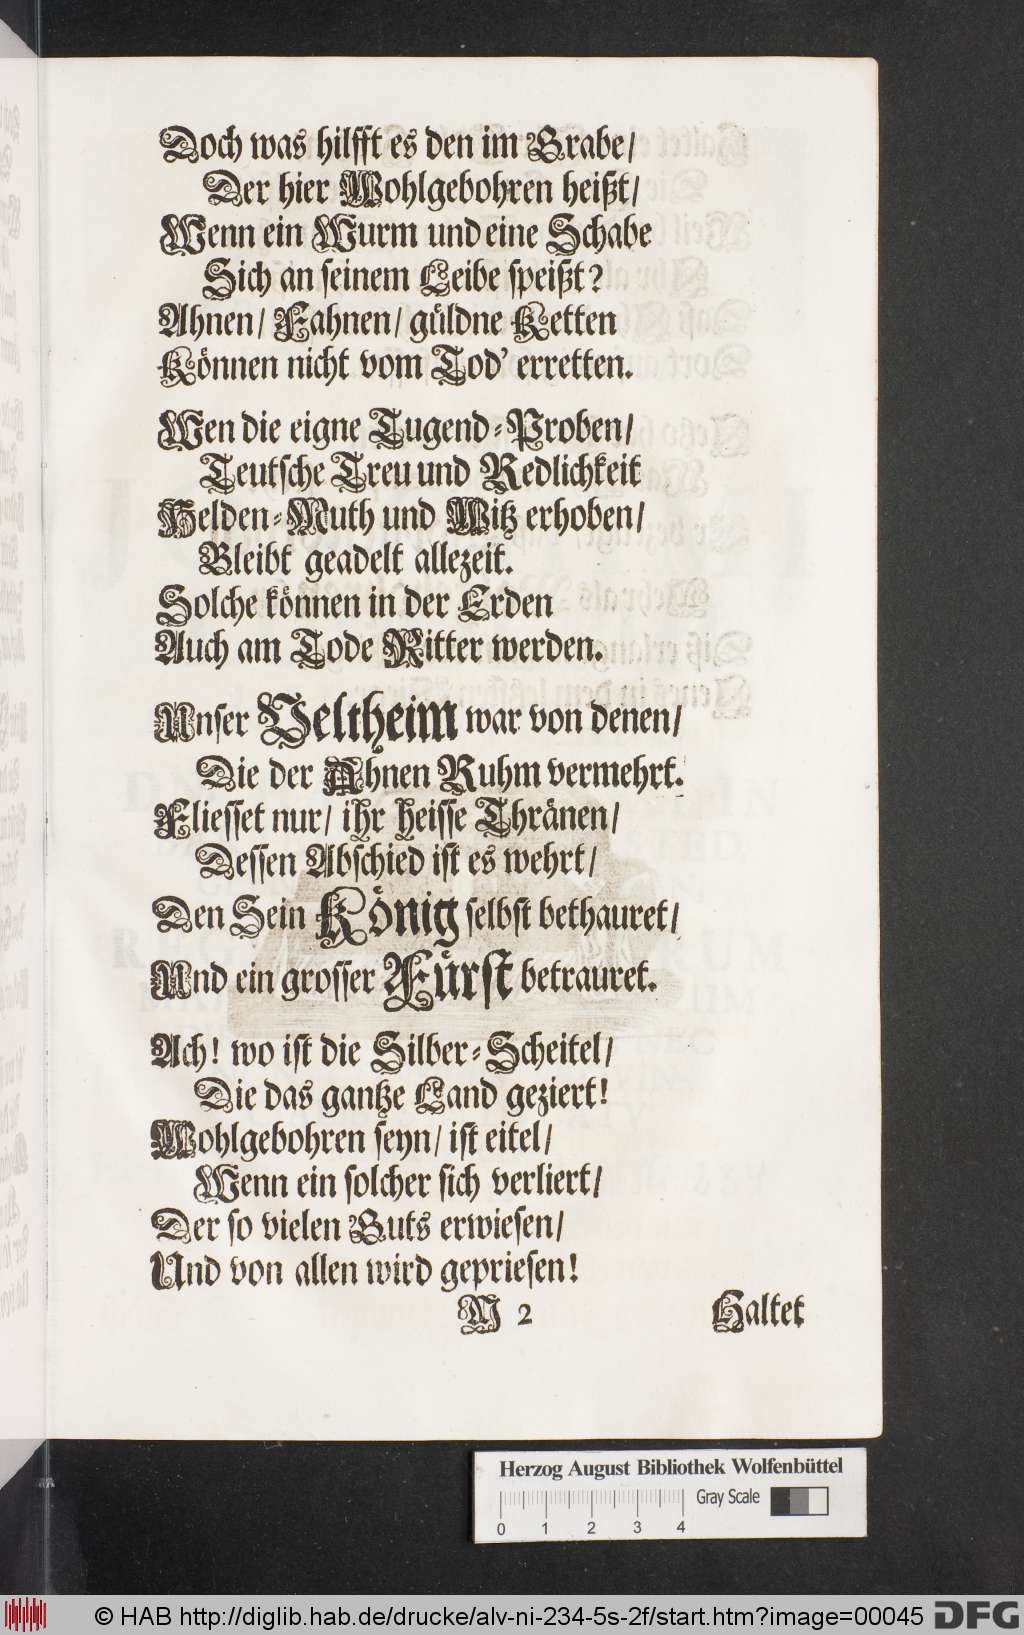 Doch was hilfft es den im Grabe/
Der hier Wohlgebohren heißt/
Wenn ein Wurm und eine Schabe
Sich an seinem Leibe speißt?
Ahnen/ Fahnen/ güldne Ketten
Können nicht vom Tod' erretten.
Wen die eigne Tugend-Proben/
Teutsche Treu und Redlichkeit
Helden-Muth und Witz erhoben/
Bleibt geadelt allezeit.
Solche können in der Erden
Auch am Tode Ritter werden.
Unser Veltheim war von denen/
Die der Ahnen Ruhm vermehrt.
Fliesset nur/ ihr heisse Thränen/
Dessen Abschied ist es wehrt/
Den Sein König selbst bethauret/
Und ein grosser Fürst betrauret.
Ach! wo ist die Silber-Scheitel/
Die das gantze Land geziert!
Wohlgebohren seyn/ ist eitel/
Wenn ein solcher sich verliert/
Der so vielen Guts erwiesen/
Und von allen wird gepriesen!
M 2 Haltet
Herzog August Bibliothek Wolfenbüttel
Gray Scale
0 1 2 3 4
© HAB http://diglib.hab.de/drucke/alv-ni-234-5s-2f/start.htm?image=00045 DFG